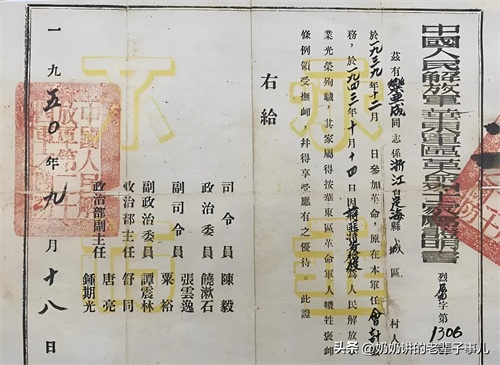 中國人民解放軍華東軍區革命烈士家屬證明書
烈屬字第1306
茲有樂 成同志係浙江省定海縣城區 村
於一九三九年十二月 日參加革命，原在本軍任會計職
務，於一九四三年十月十四日因蔣匪 為人民解放事
業光榮殉職，其家屬得按華東區革命軍人犧牲褒卹
條例領受撫卹，幷得享受應有之優待。此證
右給
司令員 陳毅
政治委員 饒漱石
副司令員 張雲逸
粟裕
副政治委員 譚震林
政治部主任 舒同
政治部副主任 唐亮
鍾期光
一九五0年九月十八日
永
不
中國人民解放軍第
头条 @奶奶讲的老辈子事儿